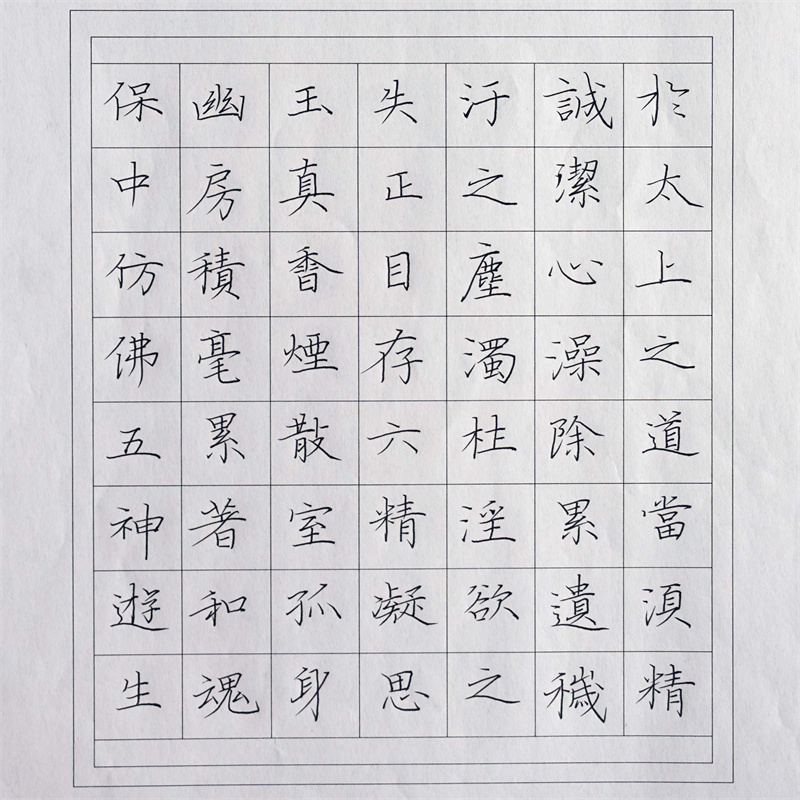 於太上之道當須精
誠潔心澡除累遺穢
汙之塵濁杜淫欲之
失正目存六精凝思
玉真香煙散室孤身
幽房積毫累著和魂
保中仿佛五神遊生